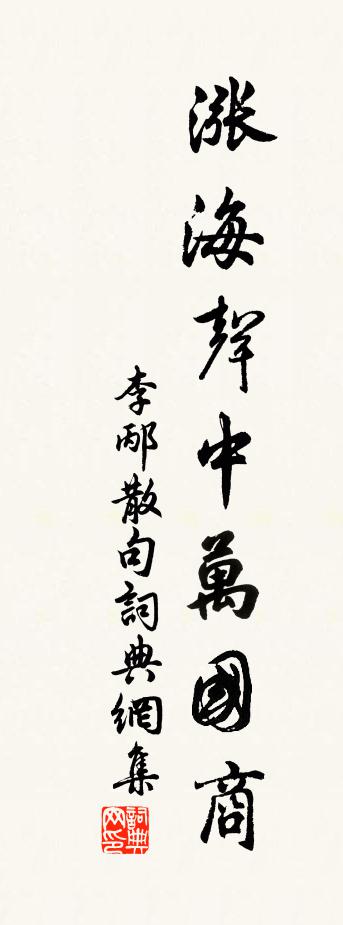 漲海聲中萬國商
李邴散句詞典網集
詞典網印